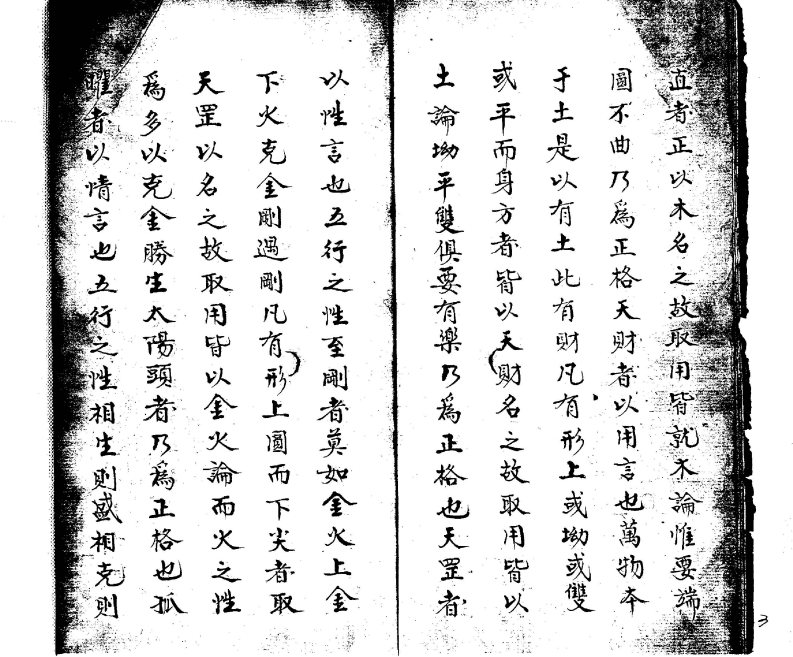 直者正以木名之故取用皆就木論惟要端
圓不曲乃爲正格天財者以用言也萬物本
于土是以有土此有財凡有形上或坳或雙
或平而身方者皆以天財名之故取用皆以
土論坳平雙俱要有樂乃爲正格也天罡者
以性言也五行之性至剛者莫如金火上金
下火克金剛遇剛凡有形上圓而下尖者取
天罡以名之故取用皆以金火論而火之性
爲多以克金勝生太陽頭者乃爲正格也孤
曜者以情言也五行之性相生則盛相克則
3